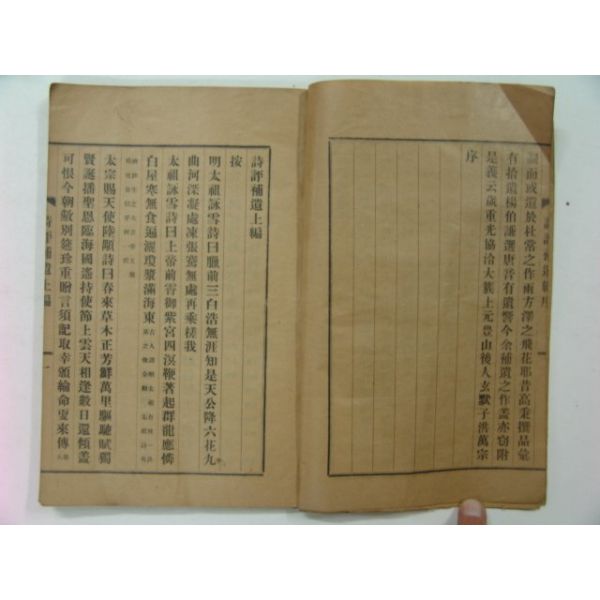 面或遺於杜常之作兩方澤之飛花耶昔高秉撰品彙
有拾遺楊伯謙選唐音有遺響今余補遺之作盖亦窃附
是義云歲重光協洽大簇上元豊山後人玄默子洪萬宗
序
詩評補遺上編
按
明太祖詠雪詩曰臘前三白浩無涯知是天公降六花九
曲河深凝處凍張騫無處再乘槎我
太祖詠雪詩曰上帝前宵御紫宮四溟鞭著起群龍應憐
白屋寒無食遍灑瓊漿滿海東
太宗賜天使陸顒詩曰春來草木正芳鮮萬里驅馳賦獨
賢誕播聖恩臨海國遙持使節上雲天相逢數日還傾盖
可恨今朝敞別筵珍重贈言須記取幸頒綸命更來傳
詩評補遺上編
一